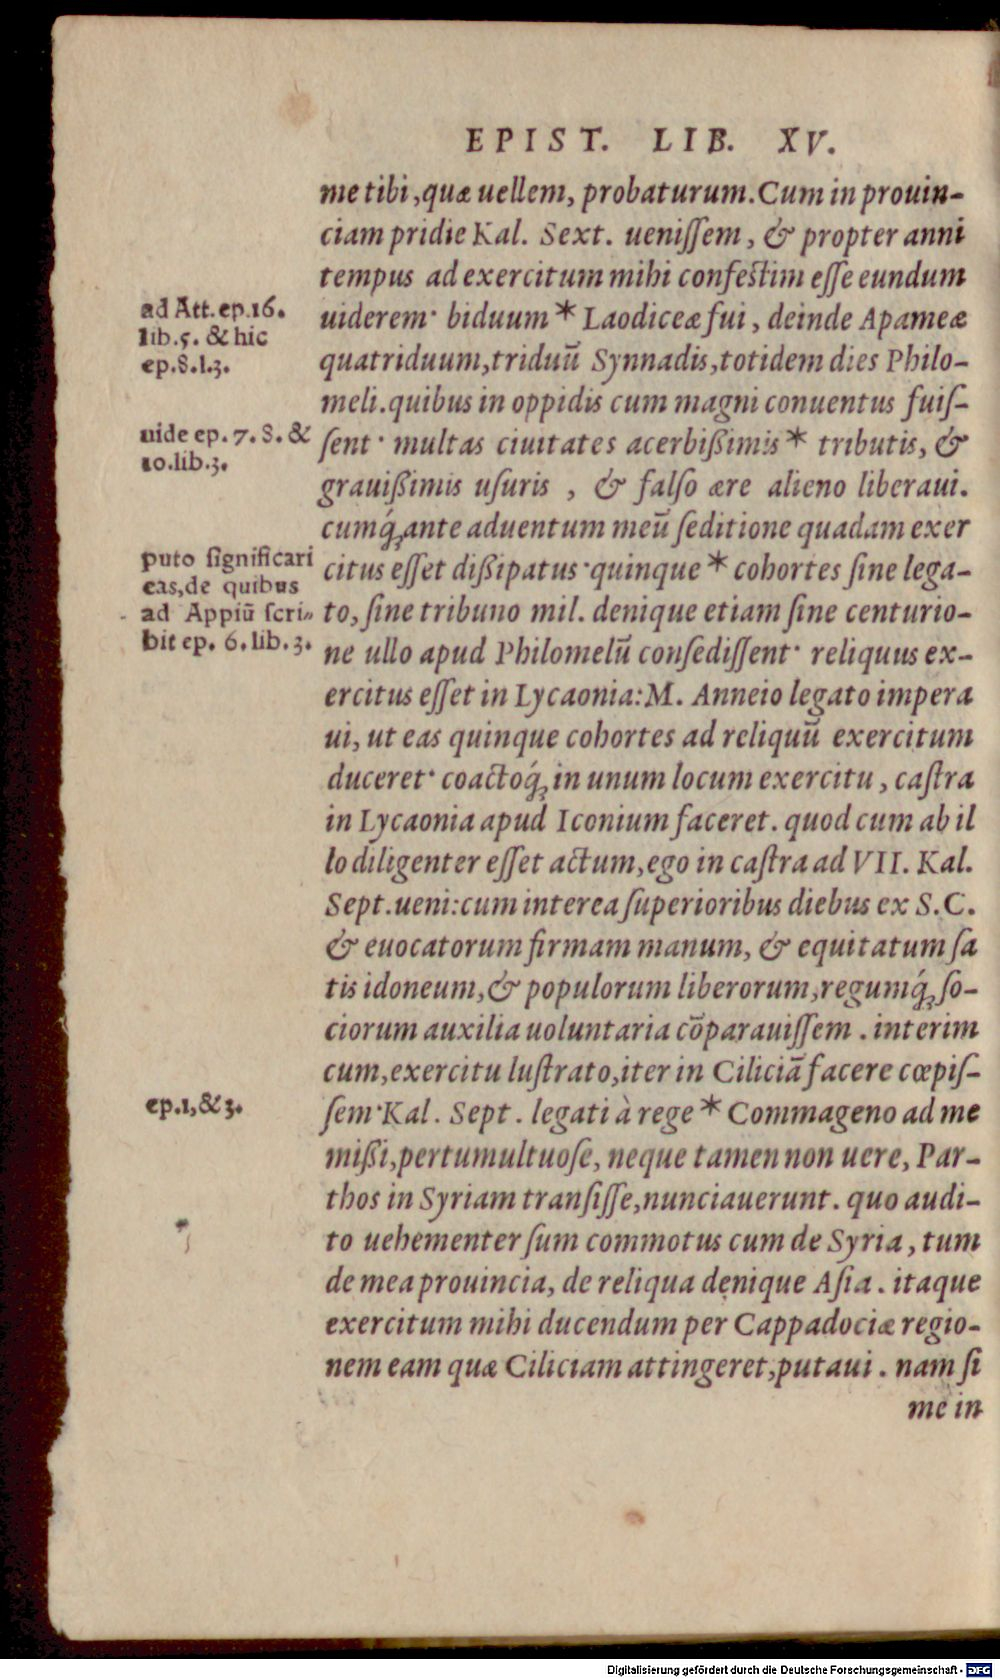 EPIST. LIB. XV.
me tibi, quæ uellem, probaturum. Cum in prouin-
ciam pridie Kal. Sext. ueniſſem, & propter anni
tempus ad exercitum mihi confeſtim eſſe eundum
uiderem· biduum * Laodiceæ fui, deinde Apameæ
quatriduum, triduũ Synnadis, totidem dies Philo-
meli. quibus in oppidis cum magni conuentus fuiſ-
ſent· multas ciuitates acerbißimis * tributis, &
grauißimis uſuris, & falſo ære alieno liberaui.
cumq́; ante aduentum meũ ſeditione quadam exer
citus eſſet dißipatus· quinque * cohortes ſine lega-
to, ſine tribuno mil. denique etiam ſine centurio-
ne ullo apud Philomelũ conſediſſent· reliquus ex-
ercitus eſſet in Lycaonia: M. Anneio legato impera
ui, ut eas quinque cohortes ad reliquũ exercitum
duceret· coactoq́; in unum locum exercitu, caſtra
in Lycaonia apud Iconium faceret. quod cum ab il
lo diligenter eſſet actum, ego in caſtra ad VII. Kal.
Sept. ueni: cum interea ſuperioribus diebus ex S.C.
& euocatorum firmam manum, & equitatum ſa
tis idoneum, & populorum liberorum, regumq́; ſo-
ciorum auxilia uoluntaria cõparauiſſem. interim
cum, exercitu luſtrato, iter in Ciliciã facere cœpiſ-
ſem· Kal. Sept. legati à rege * Commageno ad me
mißi, pertumultuoſe, neque tamen non uere, Par-
thos in Syriam tranſiſſe, nunciauerunt. quo audi-
to uehementer ſum commotus cum de Syria, tum
de mea prouincia, de reliqua denique Aſia. itaque
exercitum mihi ducendum per Cappadociæ regio-
nem eam quæ Ciliciam attingeret, putaui. nam ſi
me in
ad Att. ep. 16.
lib. 5. & hic
ep. 8. l. 3.
uide ep. 7. 8. &
10. lib. 3.
puto ſignificari
eas, de quibus
ad Appiũ ſcri-
bit ep. 6. lib. 3.
ep. 1, & 3.
Digitalisierung gefördert durch die Deutsche Forschungsgemeinschaft - DFG